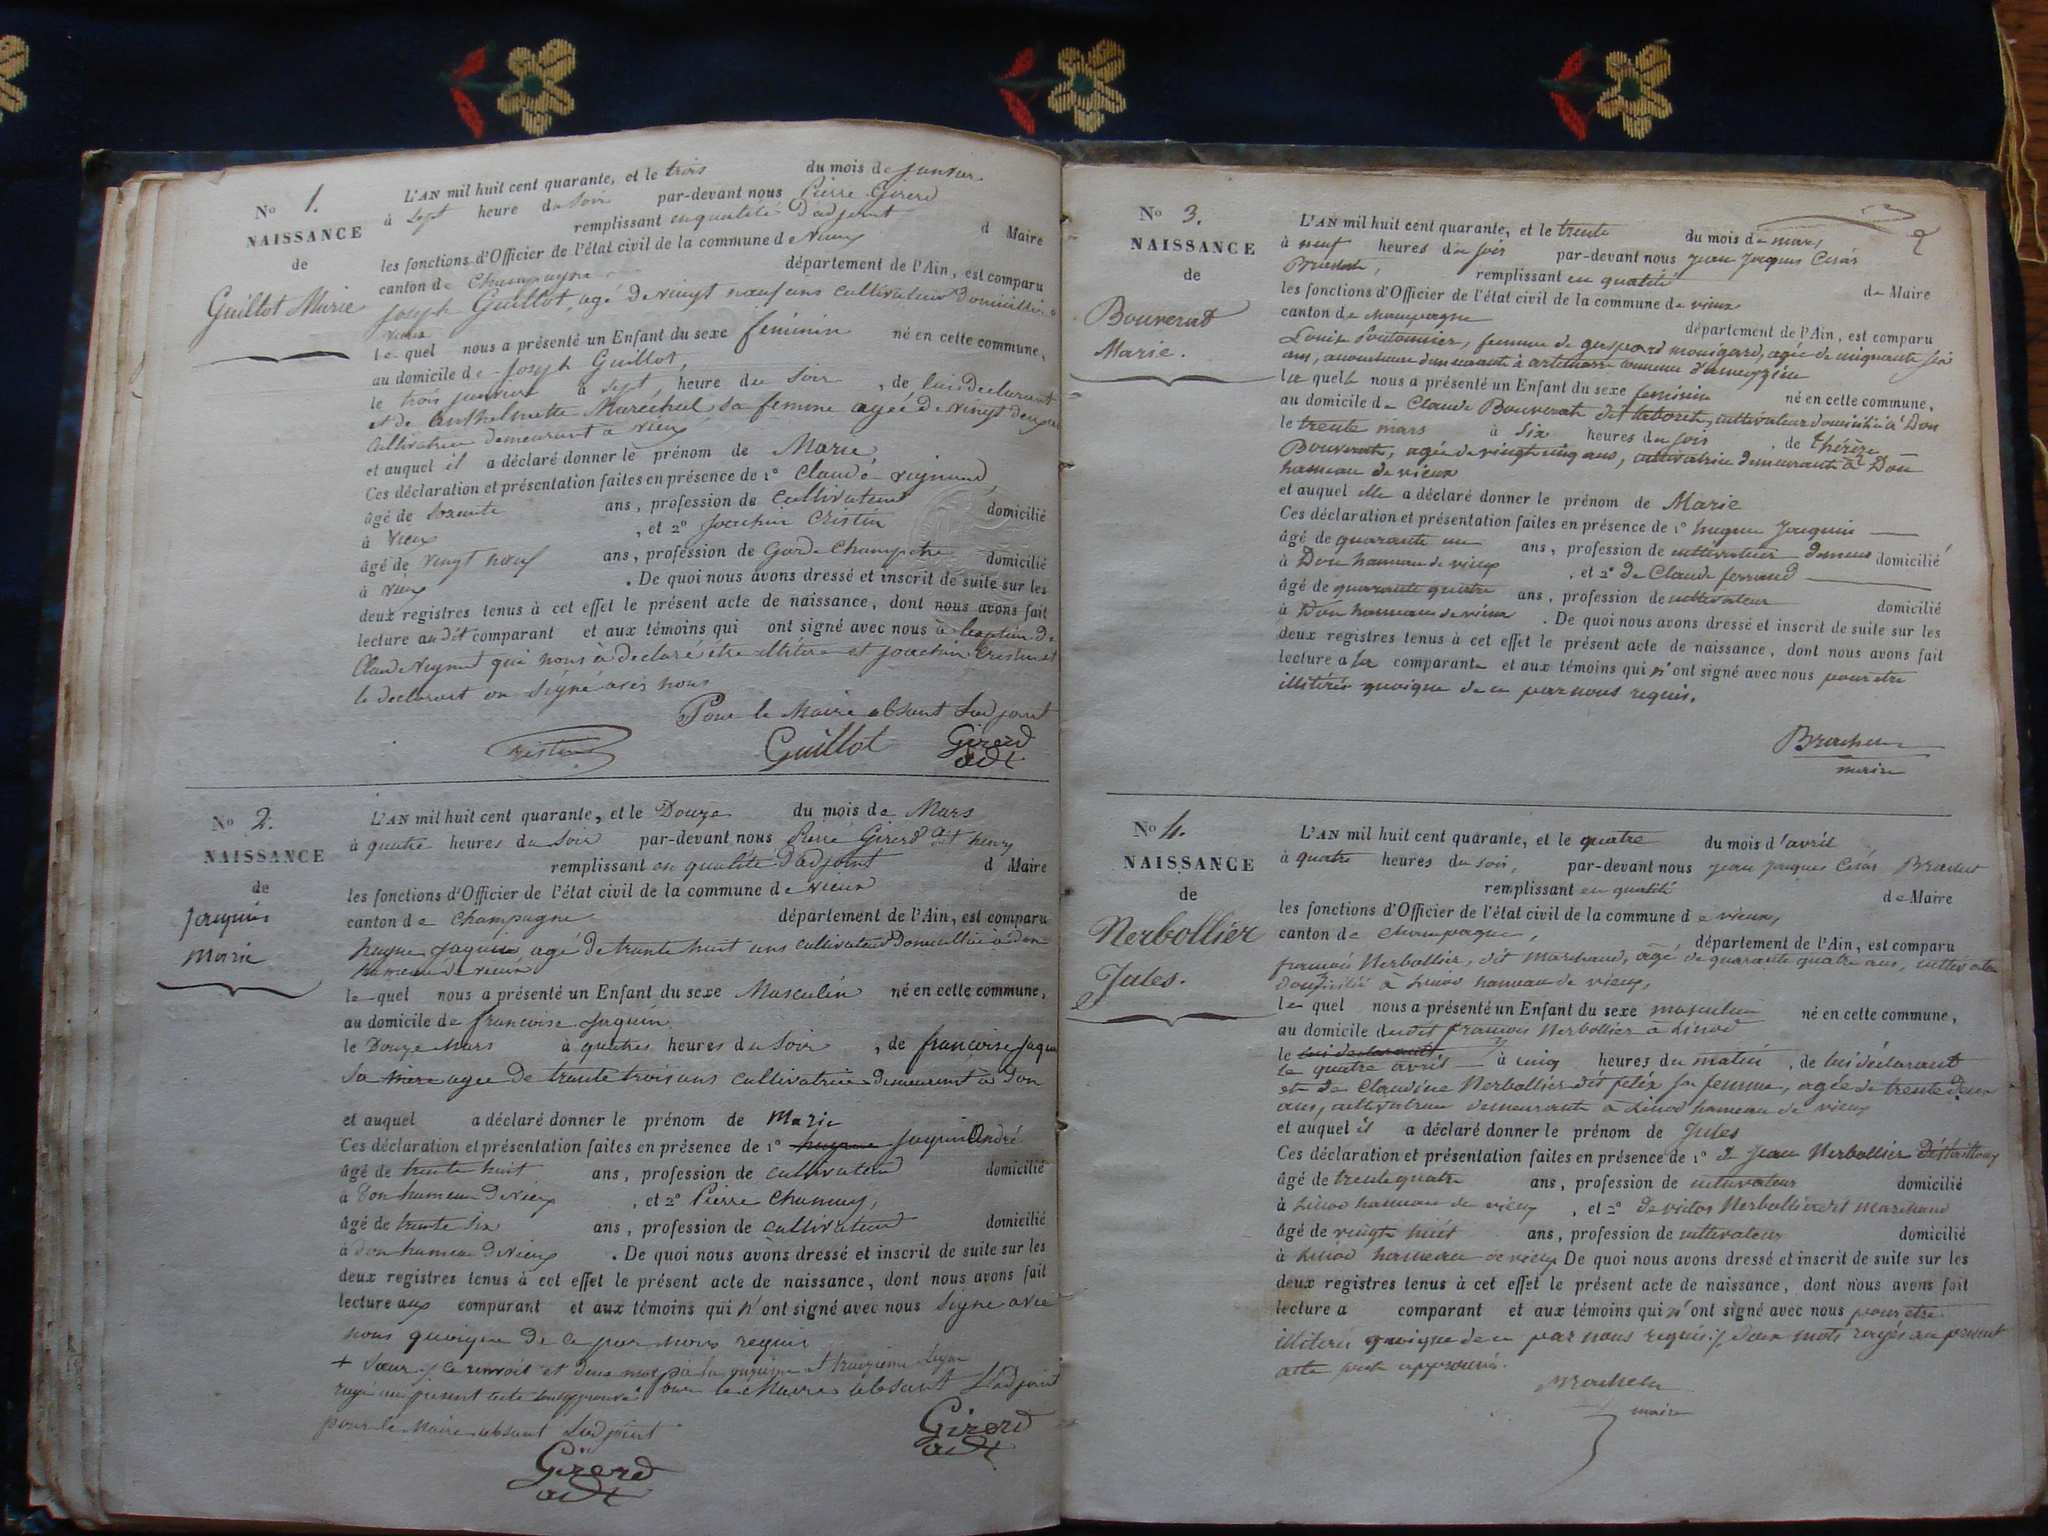 No 1.
NAISSANCE
de
Guillot Marie
L'AN mil huit cent quarante, et le trois du mois de janvier
à sept heure du soir par-devant nous Pierre Girerd
remplissant en qualité d'adjoint d Maire
les fonctions d'Officier de l'état civil de la commune de vieux
canton de Champagne département de l'Ain, est comparu
joseph Guillot, agé de vingt neuf ans cultivateur domicillié a
vieux
le quel nous a présenté un Enfant du sexe féminin né en cette commune,
au domicile de Joseph Guillot,
le trois janvier à sept, heure du soir, de lui declarant
et de Anthelmette Maréchal sa femme agée de vingt deux ans
Cultivatrice demeurant a vieux
et auquel il a déclaré donner le prénom de Marie,
Ces déclaration et présentation faites en présence de 1º Claude
âgé de soxante ans, profession de cultivateur domicilié
à vieux, et 2º joachin Cristin
âgé de vingt neuf ans, profession de Garde Champetre domicilié
à vieux. De quoi nous avons dressé et inscrit de suite sur les
deux registres tenus à cet effet le présent acte de naissance, dont nous avons fait
lecture au dit comparant et aux témoins qui ont signé avec nous à lexeption de
Claude qui nous à declaré être illitéré et joachin Cristin et
le declarant on signé avec nous
Pour le Maire absent Ladjoint
Cristin Guillot Girerd
adt
No 2.
NAISSANCE
de
jaquin
Marie
L'AN mil huit cent quarante, et le Douze du mois de Mars
à quatre heures du soir par-devant nous Pierre Girerd
remplissant en qualité d'adjoint d Maire
les fonctions d'Officier de l'état civil de la commune de vieux
canton de Champagne département de l'Ain, est comparu
jaquin, agé de trante huit ans cultivateur Domicillié a don
hameau de vieux
le quel nous a présenté un Enfant du sexe Masculin né en cette commune,
au domicile de francoise jaquin
le Douze Mars à quatres heures du Soir, de francoise jaquin
Sa mere agee de trante trois ans cultivatrice demeurent à don
et auquel a déclaré donner le prénom de Marie
Ces déclaration et présentation faites en présence de 1º jaquin André
âgé de trente huit ans, profession de cultivateur domicilié
à don hameau de vieux, et 2º Pierre
âgé de trente six ans, profession de cultivateur domicilié
à don hameau de vieux. De quoi nous avons dressé et inscrit de suite sur les
deux registres tenus à cet effet le présent acte de naissance, dont nous avons fait
lecture aux comparant et aux témoins qui n'ont signé avec nous signe avec
nous quoique de ce par nous requis
+ Sœur ce renvoit et deux mot à la
rayé au present acte Pour le Maire absent Ladjoint
pour le Maire absent Ladjoint
Girerd
adt
Girerd
adt
No 3.
NAISSANCE
de
Bouverat
Marie.
2
L'AN mil huit cent quarante, et le trente du mois de mars
à neuf heures du soir par-devant nous jean jacques César
Brachet, remplissant en qualité de Maire
les fonctions d'Officier de l'état civil de la commune de vieux
canton de champagne département de l'Ain, est comparu
Louise femme de gaspard monigard, agée de cinquante six
ans, accoucheuse demeurante à artemare commune d'ameyzieu
la quelle nous a présenté un Enfant du sexe feminin né en cette commune,
au domicile de Claude Bouverat dit cultivateur domicilié à Don
le trente mars à six heures du soir, de thérèze
Bouverat, agée de vingt cinq ans, cultivatrice demeurante à Don
hameau de vieux
et auquel elle a déclaré donner le prénom de Marie
Ces déclaration et présentation faites en présence de 1º hugue Jacquin
âgé de quarante un ans, profession de cultivateur domicilié
à Don hameau de vieux, et 2º de Claude ferrand
âgé de quarante quatre ans, profession de cultivateur domicilié
à Don hameau de vieux. De quoi nous avons dressé et inscrit de suite sur les
deux registres tenus à cet effet le présent acte de naissance, dont nous avons fait
lecture a la comparante et aux témoins qui n'ont signé avec nous pour etre
illitérés quoique de ce par nous requis.
Brachet
maire
No 4.
NAISSANCE
de
Nerbollier
Jules.
L'AN mil huit cent quarante, et le quatre du mois d'avril
à quatre heures du soir, par-devant nous jean jacques César Brachet
remplissant en qualité de Maire
les fonctions d'Officier de l'état civil de la commune de vieux,
canton de champagne, département de l'Ain, est comparu
françois Nerbollier, dit marchand, âgé de quarante quatre ans, cultivateur
domicilié à Linod hameau de vieux,
le quel nous a présenté un Enfant du sexe masculin né en cette commune,
au domicile dudit françois Nerbollier à Linod
le lui declarant à cinq heures du matin, de lui déclarant
le quatre avril
et de Claudine Nerbollier dit felix sa femme, agée de trente deux
ans, cultivatrice demeurante à Linod hameau de vieux
et auquel il a déclaré donner le prénom de Jules
Ces déclaration et présentation faites en présence de 1º de jean Nerbollier
âgé de trente quatre ans, profession de cultivateur domicilié
à Linod hameau de vieux, et 2º de victor Nerbollier dit marchand
âgé de vingt huit ans, profession de cultivateur domicilié
à Linod hameau de vieux De quoi nous avons dressé et inscrit de suite sur les
deux registres tenus à cet effet le présent acte de naissance, dont nous avons fait
lecture a comparant et aux témoins qui n'ont signé avec nous pour etre
illiterés quoique de ce par nous requis. deux mots rayés au present
acte sont approuvés.
Brachet
maire